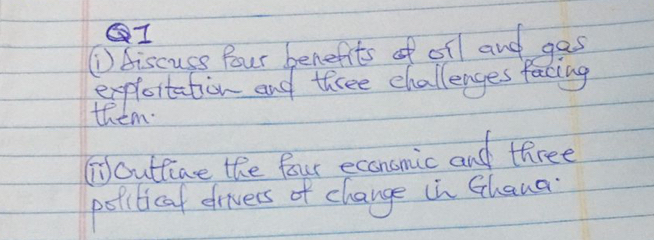 Q1
(i) Discuss four benefits of oil and gas
exploitation and three challenges facing
them.
(ii) Outline the four economic and three
political drivers of change in Ghana.